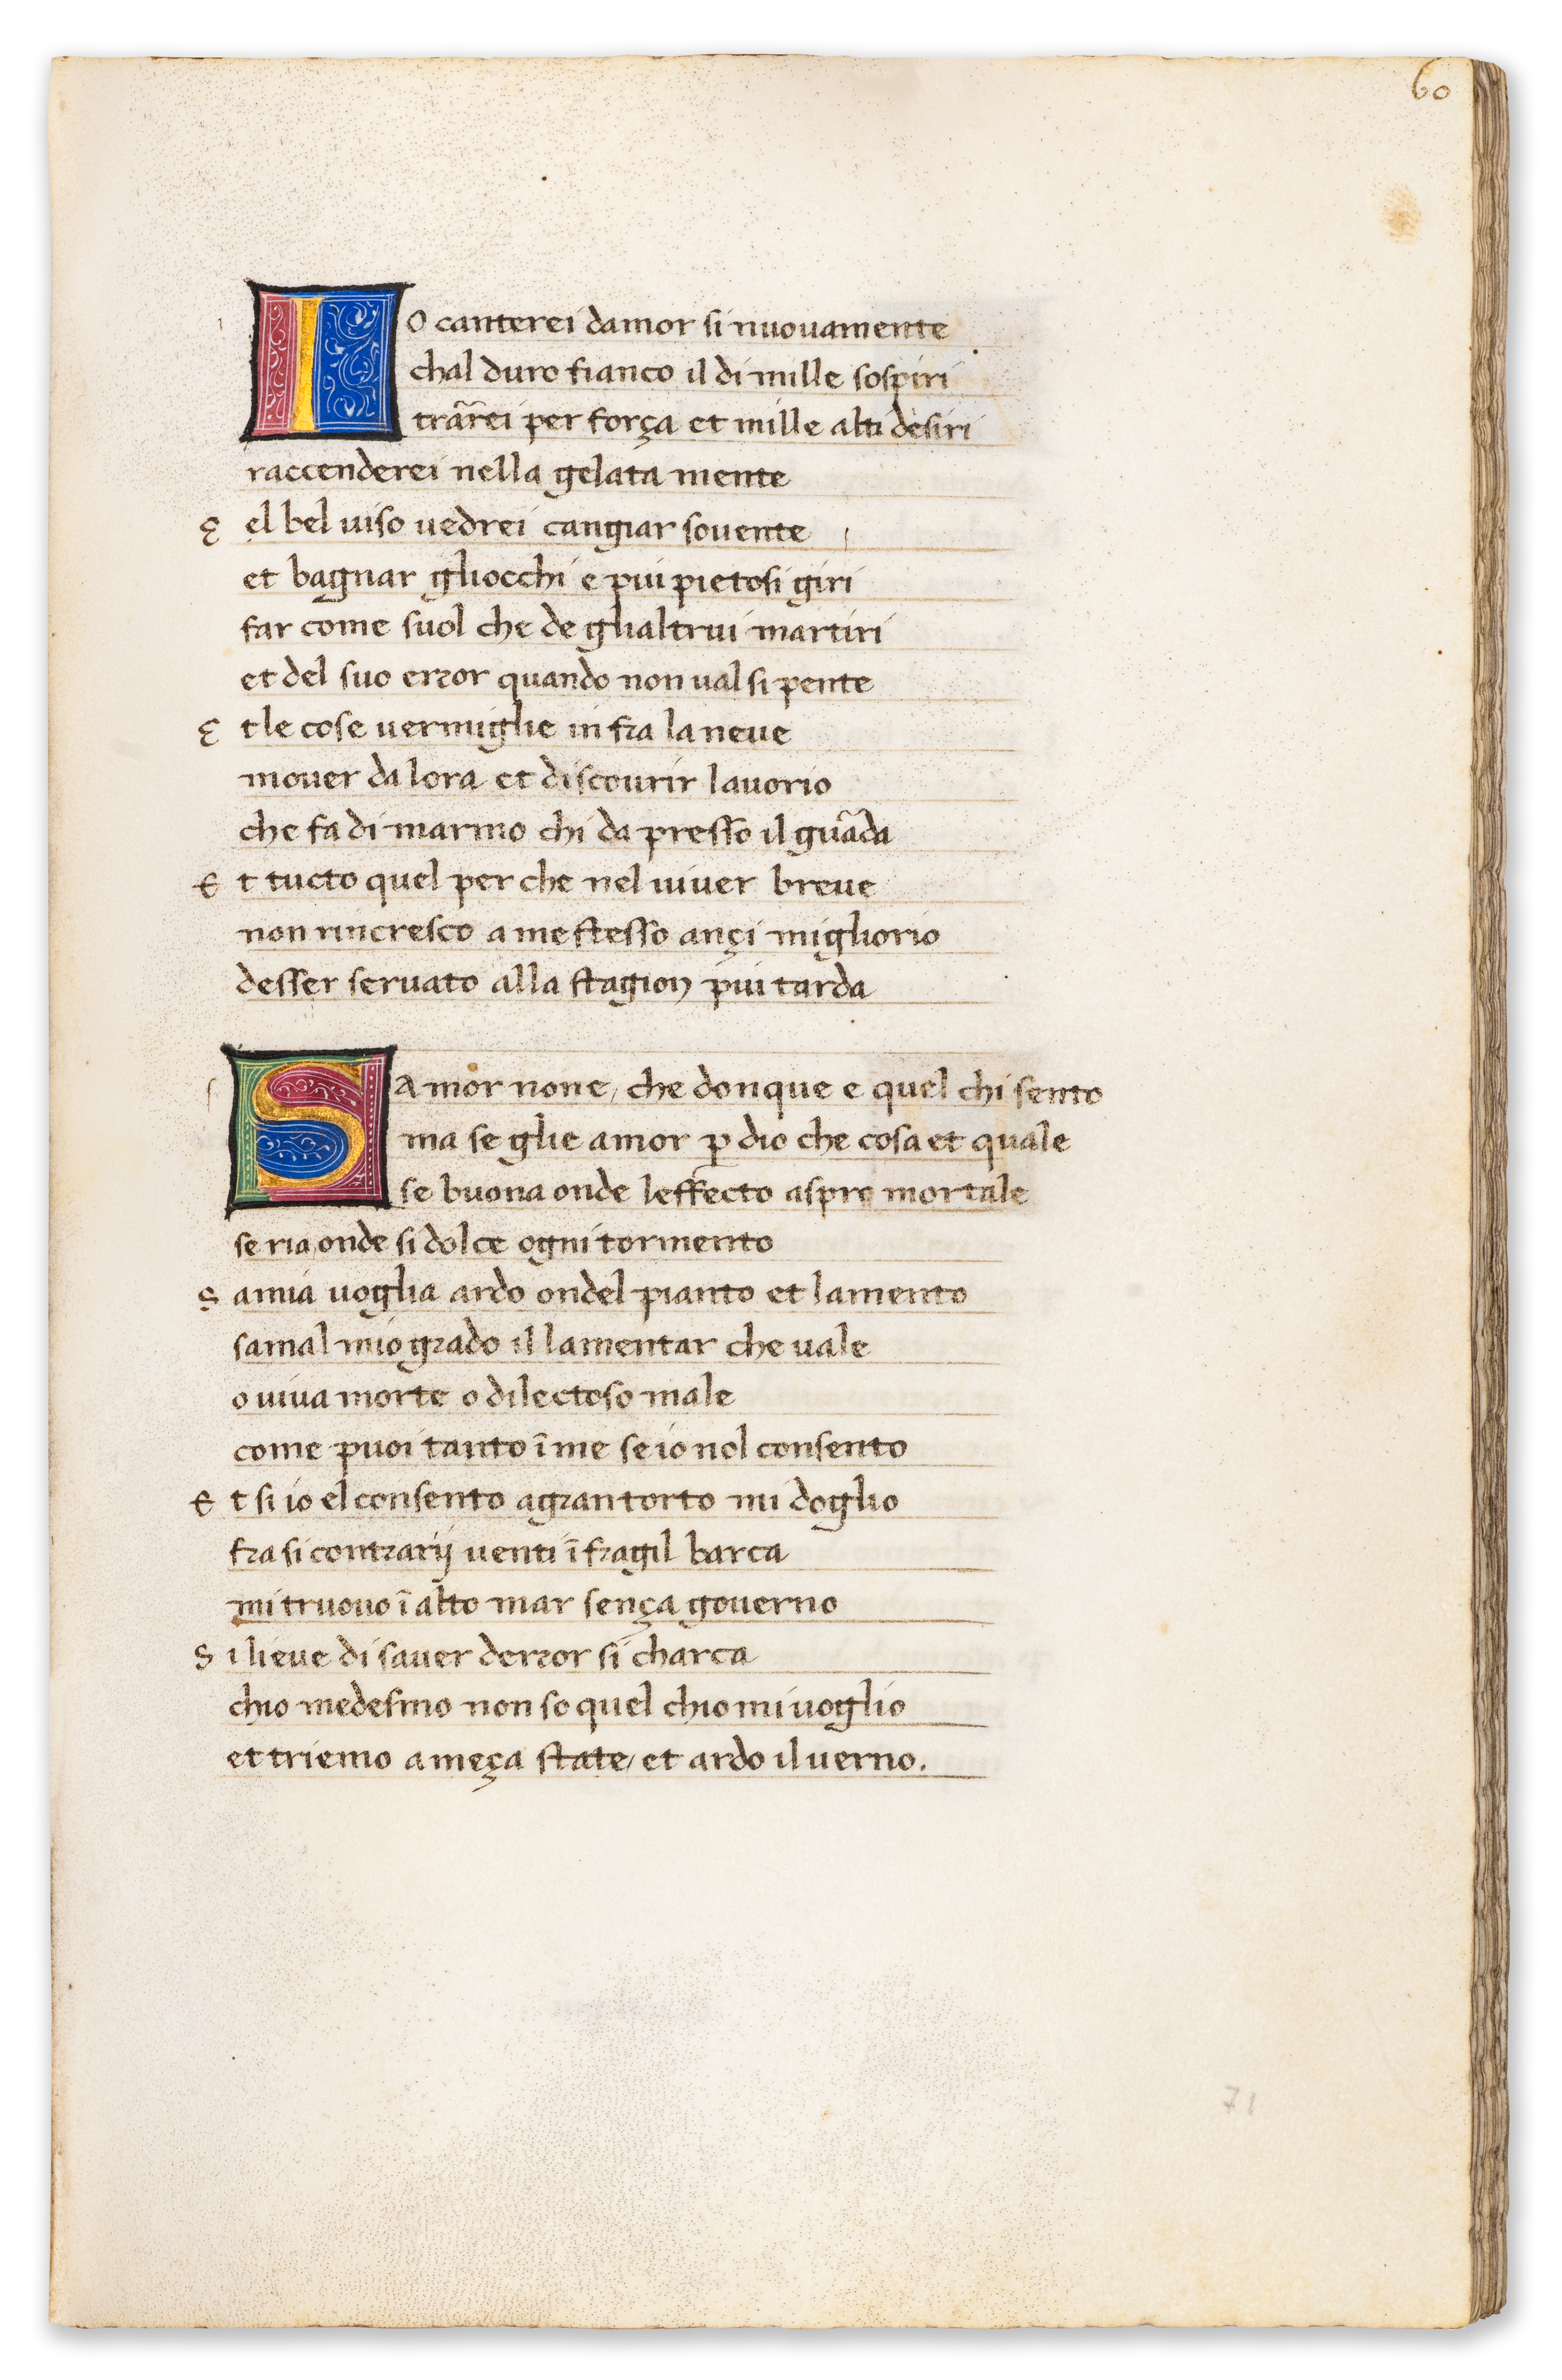 60
IO canterei damor si nuouamente
chal duro fianco il di mille sospiri
trar̄ei per força et mille alti desiri
raccenderei nella gelata mente
E el bel uiso uedrei cangiar souente
et bagnar gliocchi e piu pietosi giri
far come suol che de glialtrui martiri
et del suo error quando non ual si pente
E t le cose uermiglie in fra la neue
mouer da lora et discourir lauorio
che fa di marmo chi da presso il guāda
E t tucto quel per che nel uiuer breue
non rincresco a me stesso ançi migliorio
desser seruato alla stagion piu tarda
SA mor none, che donque e quel chi sento
ma se glie amor ꝑ dio che cosa et quale
se buona onde leffecto aspro mortale
se ria, onde si dolce ogni tormento
S amia uoglia ardo ondel pianto et lamento
samal mio grado il lamentar che uale
o uiua morte o dilectoso male
come puoi tanto ī me se io nol consento
E t si io el consento a gran torto mi doglio
fra si contrarij uenti ī fragil barca
mi truouo ī alto mar sença gouerno
S i lieue di sauer derror si charca
chio medesmo non so quel chio mi uoglio
et triemo a meça state, et ardo il uerno.
71